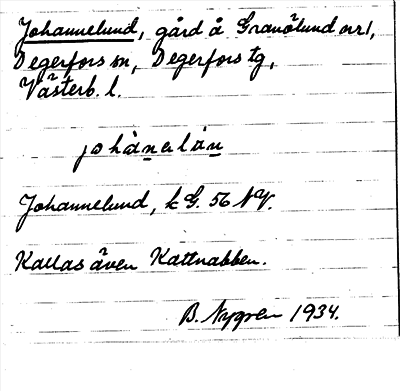 Johannelund, gård å Granölund nr 1,
Degerfors sn, Degerfors tg,
Västerb. l.
johànelún
Johannelund, k G. 56 NV.
Kallas även Kattnabben.
B. Nygren 1934.